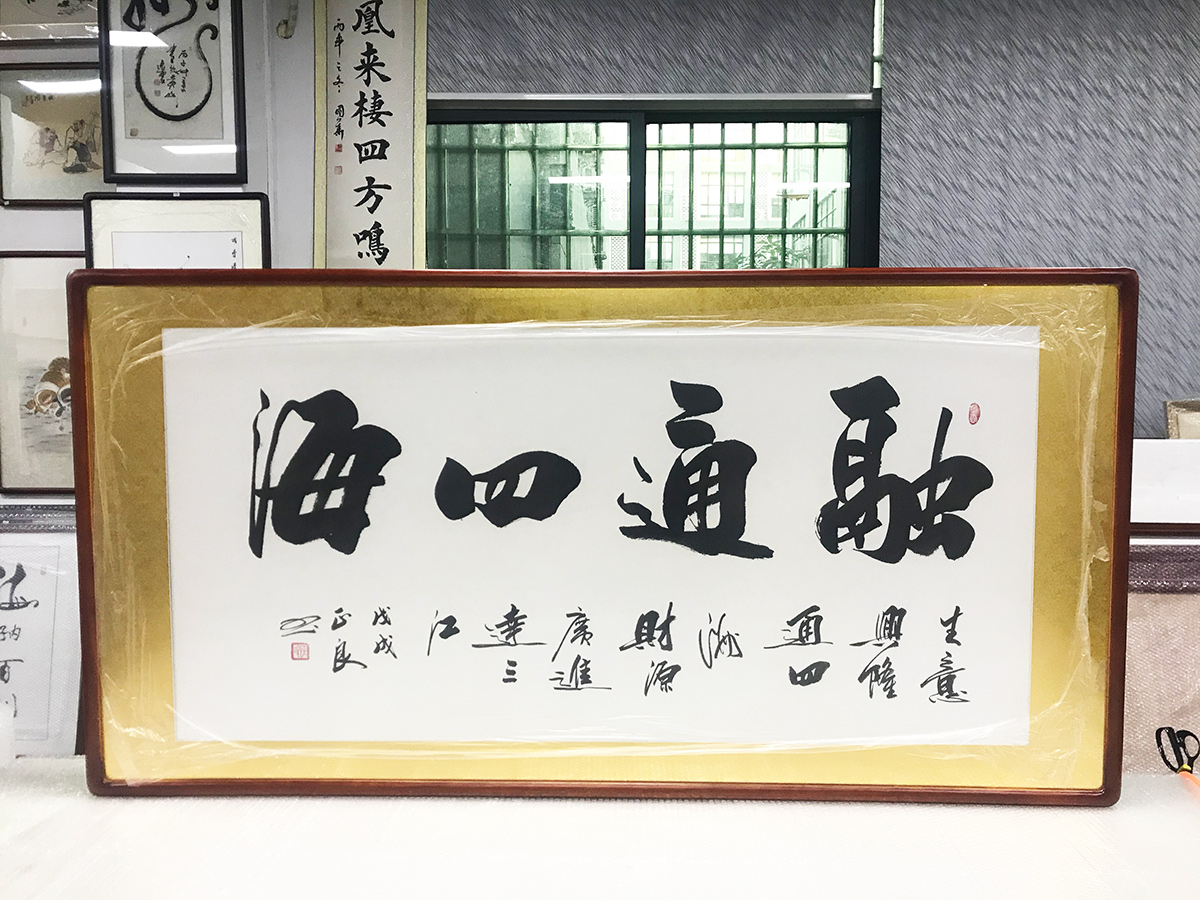 融通四海
生意
興隆
通四
海
財源
廣進
達三
江
戊戌
正良
凰来棲四方鳴
丙申之冬